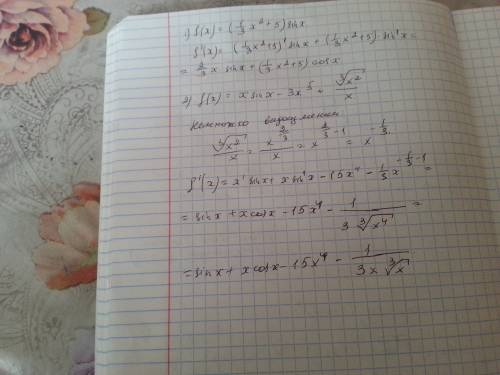 1) f(x) = (1/3 x² + 5) sinx.
f'(x) = (1/3 x² + 5)' sinx + (1/3 x² + 5) · sin'x =
= 2/3 x sinx + (1/3 x² + 5) cosx
2) f(x) = x sinx - 3x⁵ + ∛x²/x
Немножко видоизменим
∛x²/x = x^(2/3)/x = x^(2/3 - 1) = x^(-1/3)
f'(x) = x' sinx + x sin'x - 15x⁴ - 1/3 x^(-1/3 - 1) =
= sinx + x cosx - 15x⁴ - 1/(3 ∛x⁴) =
= sinx + x cosx - 15x⁴ - 1/(3x ∛x)